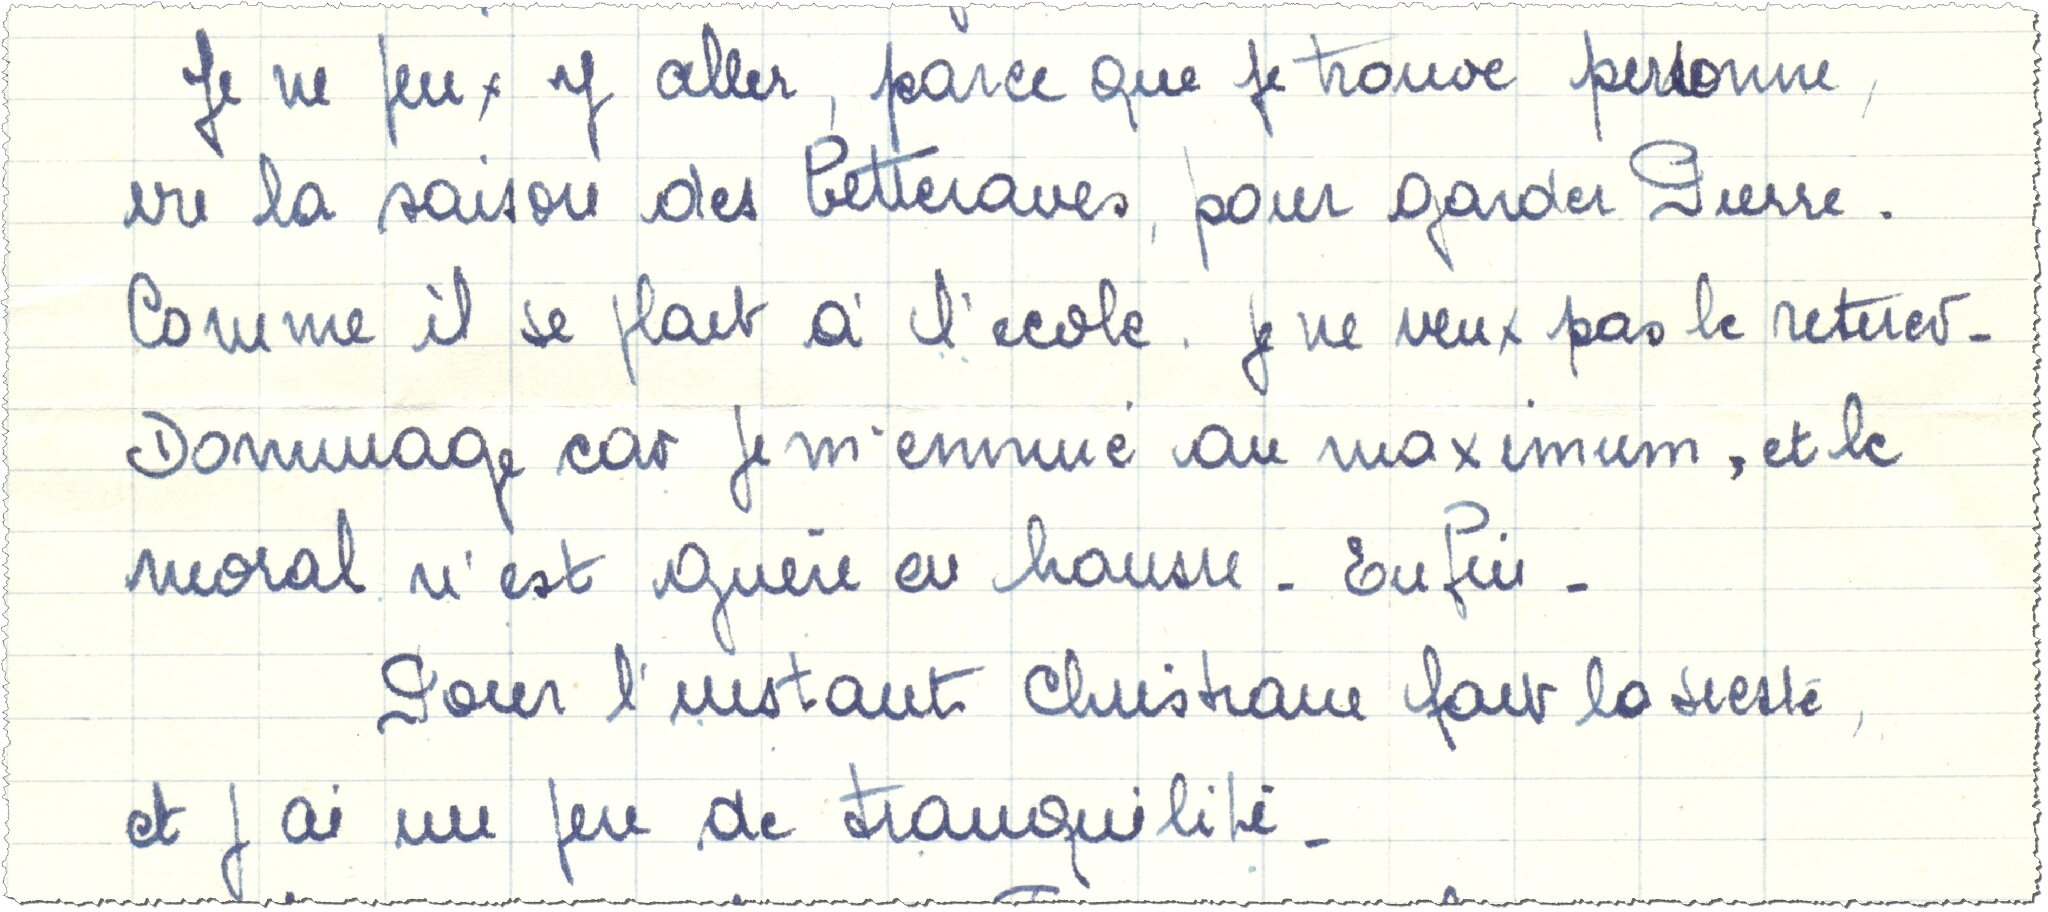 Je ne peux y aller, parce que je trouve personne,
en la saison des betteraves, pour garder Pierre.
Comme il se plait à l'ecole. je ne veux pas le retirer -
Dommage car je m'ennuie au maximum, et le
moral n'est guère en hausse - Enfin -
Pour l'instant Christiane fait la sieste,
et j'ai un peu de tranquilité -